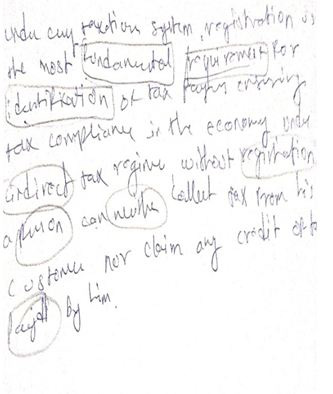 under any taxation system, registration is
the most fundamental requirement for
identification of tax payers ensuring
tax compliance in the economy. under
indirect tax regime without registration
a person can neither collect tax from his
customer nor claim any credit of t
paid by him.